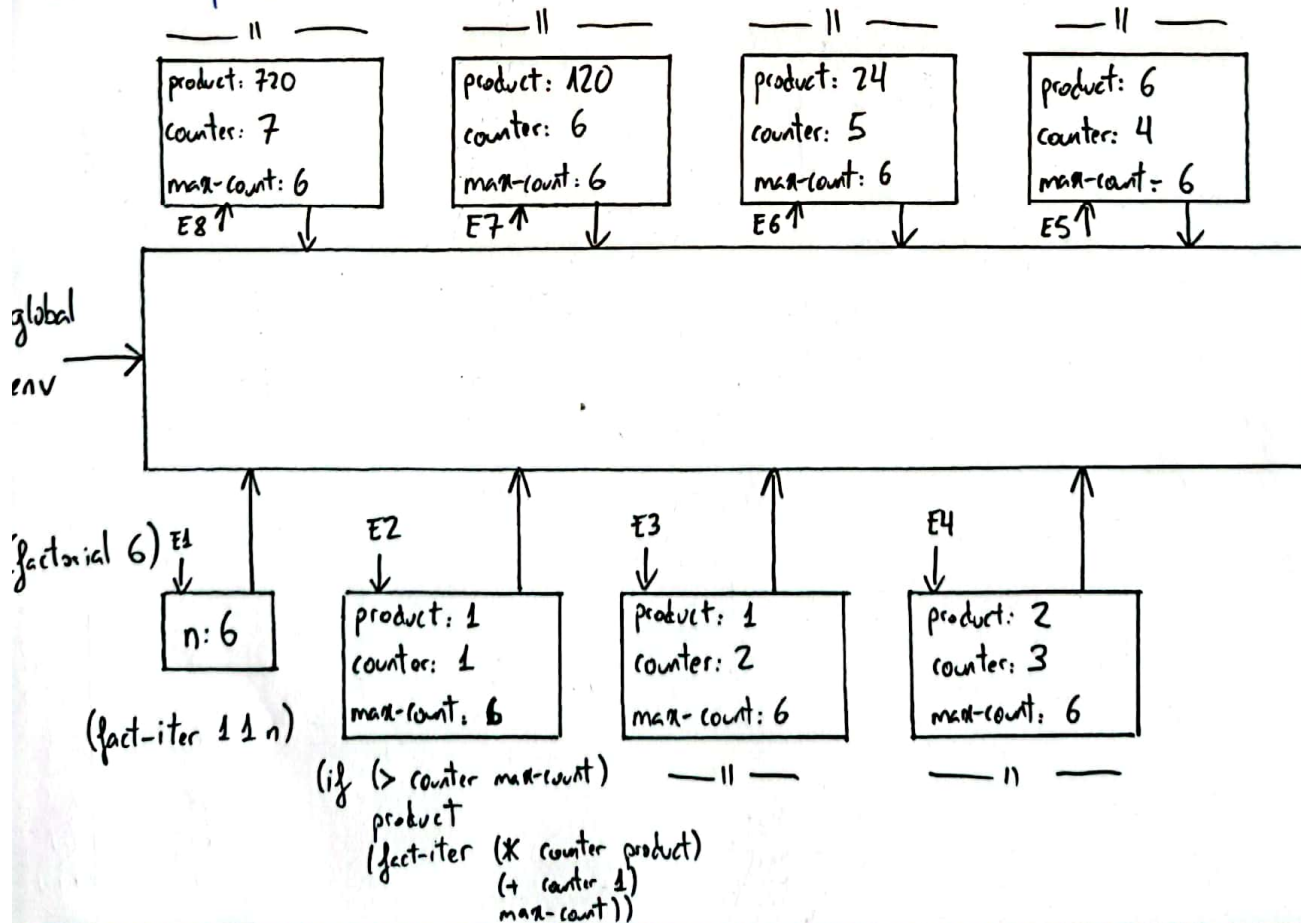 — 11 —
— 11 —
— 11 —
— 11 —
product: 720
counter: 7
max-count: 6
E8
product: 120
counter: 6
max-count: 6
E7
product: 24
counter: 5
max-count: 6
E6
product: 6
counter: 4
max-count: 6
E5
global
env
(factorial 6)
E1
n: 6
(fact-iter 1 1 n)
E2
product: 1
counter: 1
max-count: 6
(if (> counter max-count)
product
(fact-iter (* counter product)
(+ counter 1)
max-count))
E3
product: 1
counter: 2
max-count: 6
— 11 —
E4
product: 2
counter: 3
max-count: 6
— 11 —